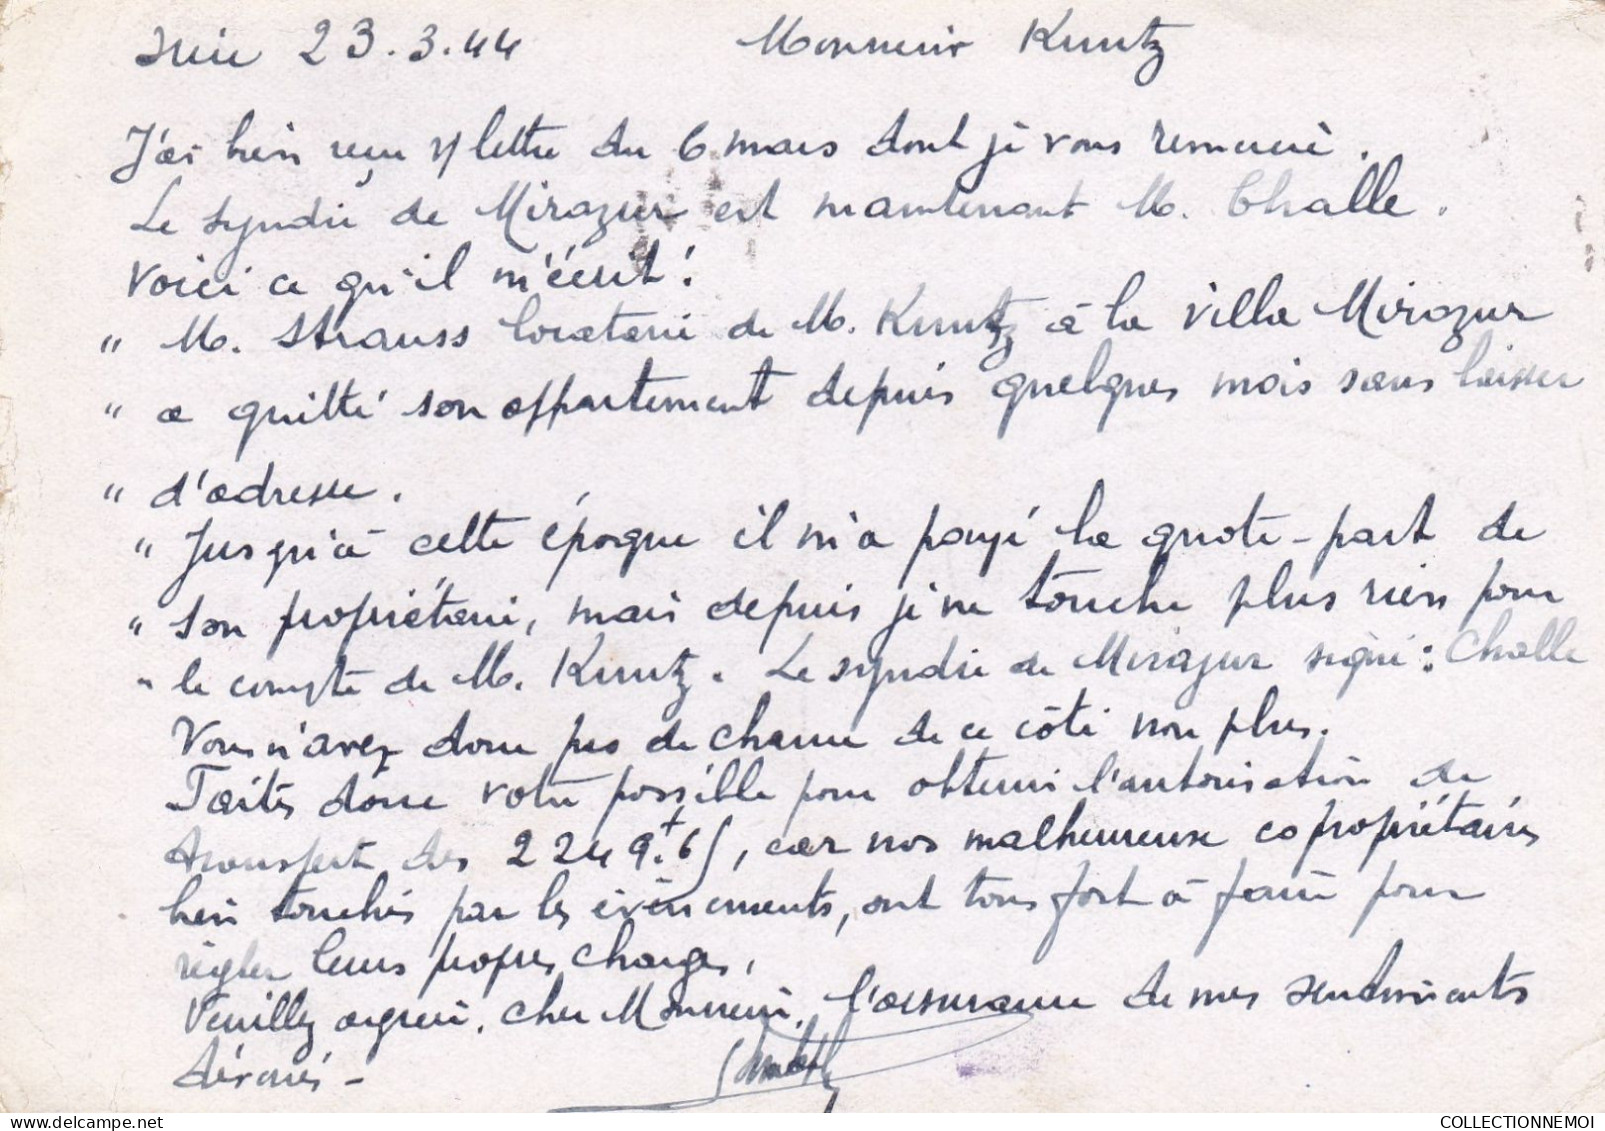 Nice 23.3.44 Monsieur Kuntz
J'ai bien reçu v/ lettre du 6 mars dont je vous remercie.
Le syndic de Mirazur est maintenant M. Challe.
Voici ce qu'il m'écrit :
" M. Strauss locataire de M. Kuntz à la villa Mirazur
" a quitté son appartement depuis quelques mois sans laisser
" d'adresse.
" Jusqu'à cette époque il m'a payé la quote-part de
" son propriétaire, mais depuis je ne touche plus rien pour
" le compte de M. Kuntz. Le syndic de Mirazur signé : Challe
Vous n'avez donc pas de chance de ce côté non plus.
Faites donc votre possible pour obtenir l'autorisation de
transfert des 2249f.65, car nos malheureux copropriétaires
bien touchés par les évènements, ont tous fort à faire pour
régler leurs propres charges.
Veuillez agréer, cher Monsieur, l'assurance de mes sentiments
dévoués -
COLLECTIONNEMOI